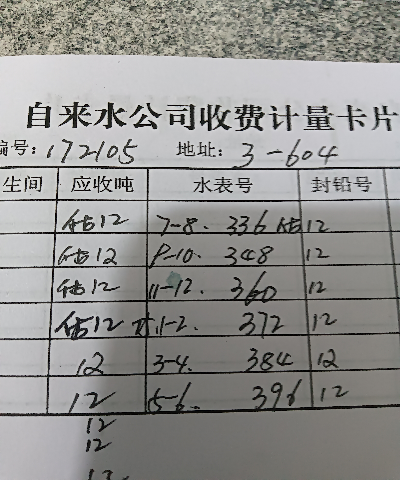 自来水公司收费计量卡片
编号: 172105 地址: 3-604
生间 应收吨 水表号 封铅号
估12 7-8. 336 估 12
估12 9-10. 348 12
估12 11-12. 360 12
估12 1-2. 372 12
12 3-4. 384 12
12 5-6. 396 12
12
12
12